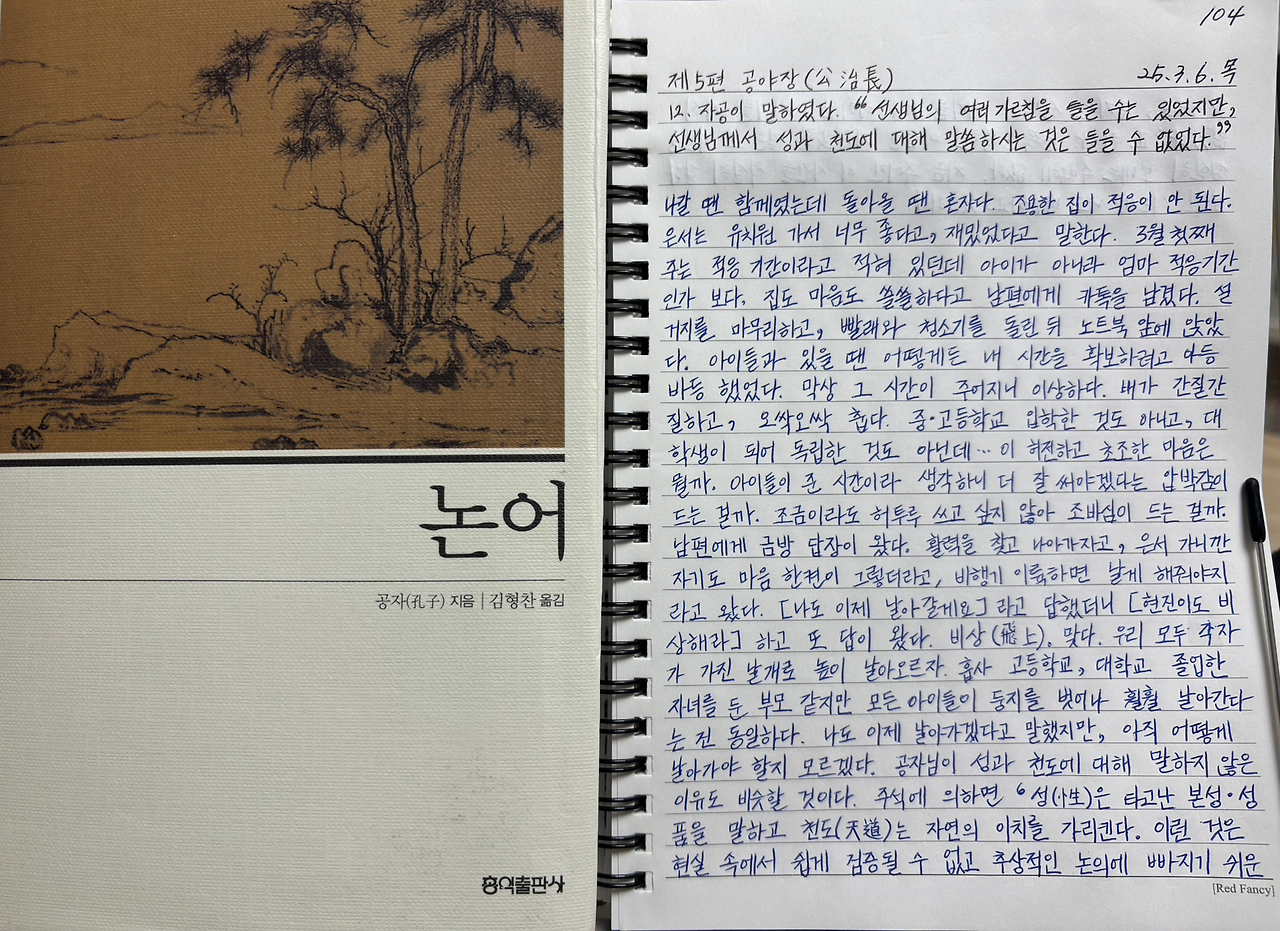 논어
공자(孔子) 지음 | 김형찬 옮김
홍익출판사
104
제5편 공야장(公冶長) 25.3.6.목
12. 자공이 말하였다. "선생님의 여러 가르침을 들을 수는 있었지만,
선생님께서 성과 천도에 대해 말씀하시는 것은 들을 수 없었다."
나갈 땐 함께였는데 돌아올 땐 혼자다. 조용한 집이 적응이 안 된다.
은서는 유치원 가서 너무 좋다고, 재밌었다고 말한다. 3월 첫째
주는 적응기간이라고 적혀 있던데 아이가 아니라 엄마 적응기간
인가 보다. 집도 마음도 쓸쓸하다고 남편에게 카톡을 남겼다. 설
거지를 마무리하고, 빨래와 청소기를 돌린 뒤 노트북 앞에 앉았
다. 아이들과 있을 땐 어떻게든 내 시간을 확보하려고 아등
바등 했었다. 막상 그 시간이 주어지니 이상하다. 배가 간질간
질하고, 오싹오싹 춥다. 중·고등학교 입학한 것도 아니고, 대
학생이 되어 독립한 것도 아닌데… 이 허전하고 초조한 마음은
뭘까. 아이들이 준 시간이라 생각하니 더 잘 써야겠다는 압박감이
드는 걸까. 조금이라도 허투루 쓰고 싶지 않아 조바심이 드는 걸까.
남편에게 금방 답장이 왔다. 활력을 찾고 나아가자고, 은서 가니깐
자기도 마음 한켠이 그렇더라고, 비행기 이륙하면 날게 해줘야지
라고 왔다. [나도 이제 날아갈게요] 라고 답했더니 [현진이도 비
상해라] 하고 또 답이 왔다. 비상(飛上). 맞다. 우리 모두 각자
가 가진 날개로 높이 날아오르자. 흡사 고등학교, 대학교 졸업한
자녀를 둔 부모 같지만 모든 아이들이 둥지를 벗어나 훨훨 날아간다
는 건 동일하다. 나도 이제 날아가겠다고 말했지만, 아직 어떻게
날아가야 할지 모르겠다. 공자님이 성과 천도에 대해 말하지 않은
이유도 비슷할 것이다. 주석에 의하면 '성(性)은 타고난 본성·성
품을 말하고 천도(天道)는 자연의 이치를 가리킨다. 이런 것은
현실 속에서 쉽게 검증될 수 없고 추상적인 논의에 빠지기 쉬운
[Red Fancy]